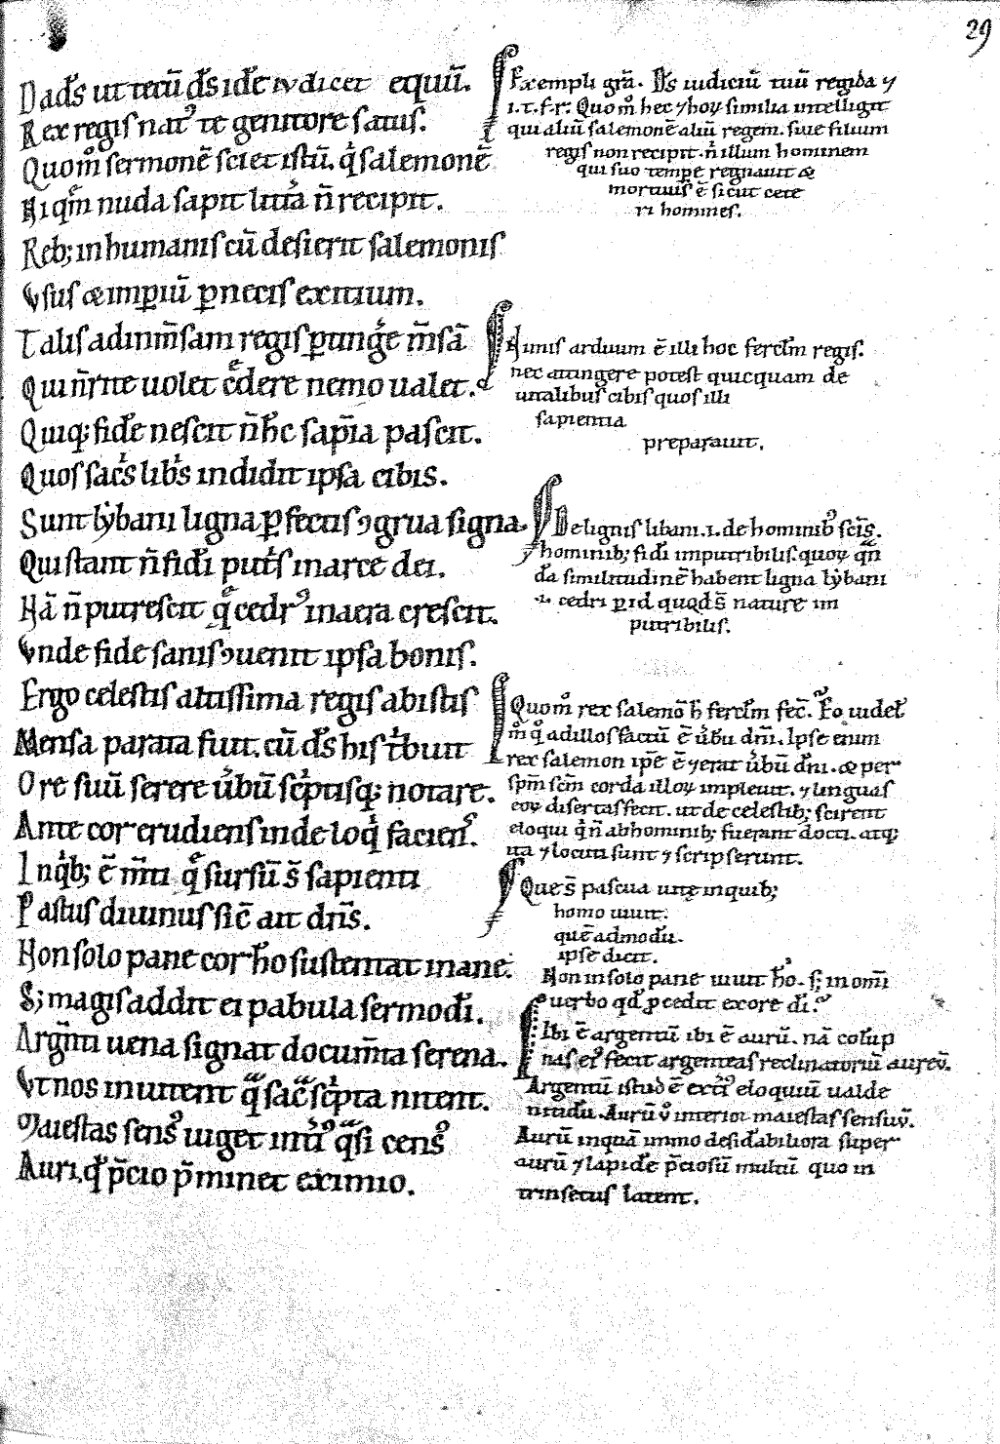 29
Dad̄s ut tecū d̄s id̄e iudicet equū.
Rex regis nat᾽ te genitore satus.
Quom̊ sermonē sciet istū. q̇ salemonē
Hiq̄m nuda sapit litt̄a n̄ recipit.
Reb; in humanis cū desierit salemonis
Usus & imꝑiū ꝑ necis exitium.
Talis ad inm̄sam regis ꝑtinǧe m̄sā
Qui n̄ rite uolet c̄dere nemo ualet.
Quiq; fid̄e nescit n̄ h̄c sap̄ia pascit.
Quos sac̄s lib̄s indidit ipsa cibis.
Sunt lẏbani ligna ꝑfectis ꝯgrua signa.
Qui stant n̄ fid̄i put̄s in arce dei.
Hā n̄ putrescit q̄ cedr᾽ in aera crescit.
Unde fide sanis ꝯuenit ipsa bonis.
Ergo celestis altissima regis abistis
Mensa parata fuit. cū d̄s his t̄buit
Ore suū serere u̇bū sc̄ptisq; notare.
Ante cor erudiens inde loq̇ faciens̄.
Inq̇b; ē m̄ti q̄ sursū s̄ sapienti
Pastus diuinus sic̄ ait dn̄s.
Hon solo pane cor h̄o sustentat inane.
S; magis addit ei pabula sermo d̄i.
Argm̄ti uena signat docum̄ta serena.
Ut nos inuitent q̄ sac̄ sc̄pta nitent.
Maiestas sens᾽ uiget int᾽ q̄si cens᾽
Auri. q̄ p̄cio p̄minet eximio.
Exempli grā. D̄s iudiciū tuū regi da ⁊
i. t. f. r. Quom̊ hec ⁊ hoꝝ similia intelligit
qui aliū salemonē aliū regem. siue filium
regis non recipit. n̄ illum hominem
qui suo temꝑe regnauit &
mortuus ē sicut cete
ri homines.
Himis arduum ē illi hoc fercl̄m regis.
nec attingere potest quicquam de
uitalibus cibis quos illi
sapientia
preparauit.
De lignis libani .i. de hominib᾽ sc̄is.
⁊ hominib; fidi imputribilis. quoꝝ q̄n
d̄a similitudinē habent ligna lẏbani
.i. cedri ꝑ id quod s̄ nature im
putribilis.
Quom̊ rex salemō h̄ fercl̄m fec̄. Eo uidel̄
m̊ q̊ ad illos factū ē u̇bū dn̄i. Ipse enim
rex salemon ip̄e ē ⁊ erat u̇bū dn̄i. & per
sp̄m sc̄m corda illoꝝ impleuit. ⁊ linguas
eoꝝ disertas fecit. ut de celestib; scirent
eloqui q̇ n̄ ab hominib; fuerant docti. atq;
ita ⁊ locuti sunt ⁊ scripserunt.
Que s̄ pascua uite in quib;
homo uiuit.
quē admodū.
ipse dicit.
Hon in solo pane uiuit h̄o. s; in omī
uerbo qd̄ ꝓcedit ex ore d̄i.
Ibi ē argentū ibi ē aurū. nā colūp
nas ei᾽ fecit argenteas reclinatoriū aureū.
Argentū istud ē exti᾽ eloquiū ualde
nitidū. Aurū u̇ interior maiestas sensuū.
Aurū inquā immo desid̄abiliora super
aurū ⁊ lapid̄e p̄ciosū multū quo in
trinsecus latent.